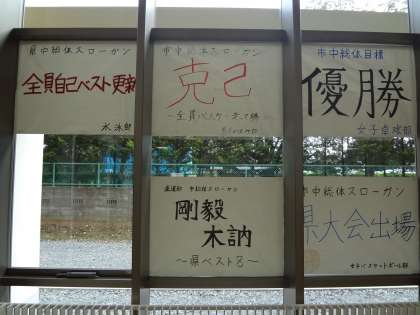 県中総体スローガン
全員自己ベスト更新
水泳部
市中総体スローガン
克己
市中総体目標
優勝
女子卓球部
柔道部 市総体スローガン
剛毅
木訥
～県ベスト8～
市中総体スローガン
県大会出場
女子バスケットボール部